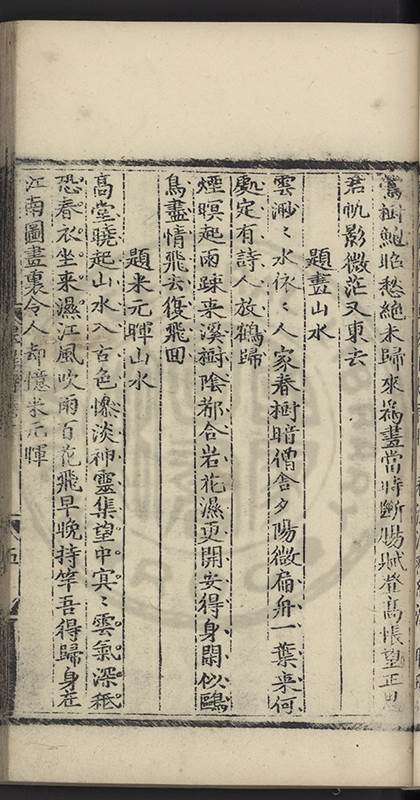 鶯樹鮑昭愁絕未歸來為畫當時斷腸賦登高悵望正思
君帆影微茫又東去
題畫山水
雲渺〻水依〻人家春樹暗僧舍夕陽微扁舟一葉来何
處定有詩人放鶴歸
煙暝起雨疎来溪樹陰都合岩花濕更開安得身閑似鷗
鳥盡情飛去復飛回
題米元暉山水
高堂曉起山水入古色慘淡神靈集望中冥〻雲氣深秪
恐春衣坐来濕江風吹雨百花飛早晚持竿吾得歸身在
江南圖畫裏令人却憶米元暉